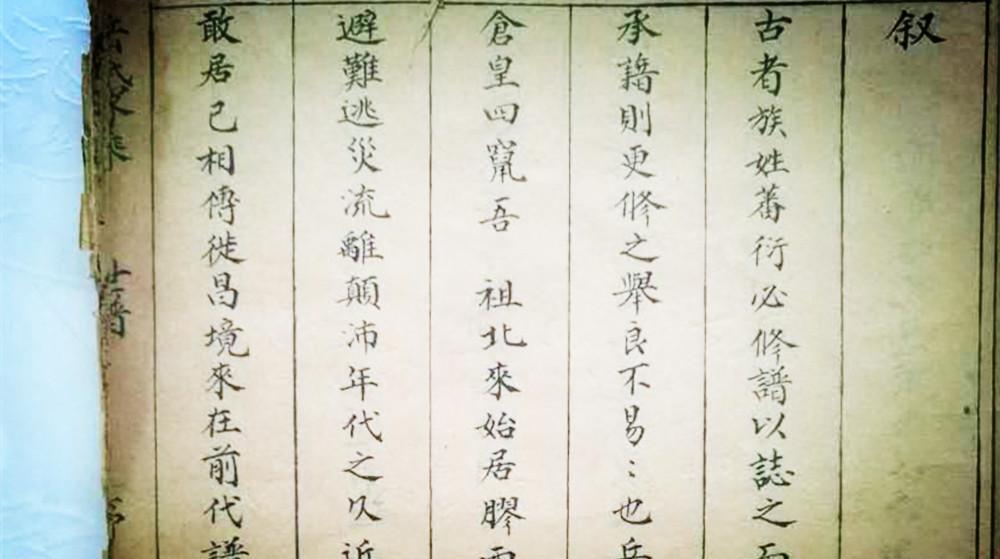 叙
古者族姓蕃衍必修譜以誌之而
承藉則更修之舉良不易〻也兵
倉皇四竄吾　祖北來始居膠西
避難逃災流離顛沛年代之久近
敢居己相傳徙昌境來在前代譜